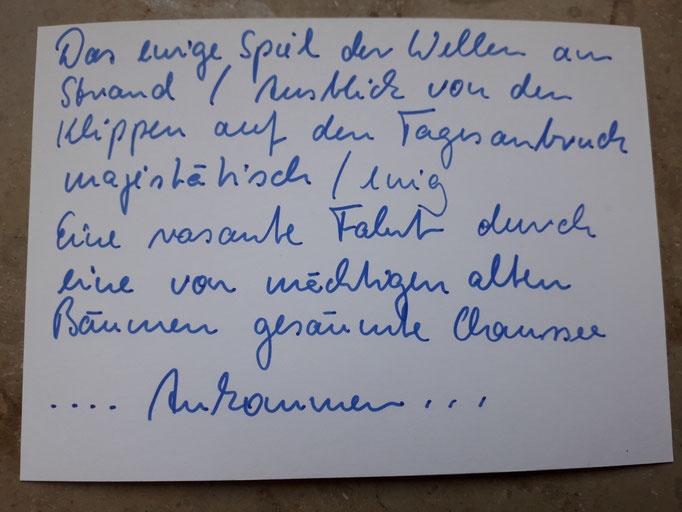 Das ewige Spiel der Wellen am
Strand / Ausblick von den
Klippen auf den Tagesanbruch
majestätisch / ewig
Eine rasante Fahrt durch
eine von mächtigen alten
Bäumen gesäumte Chaussee
.... Ankommen...